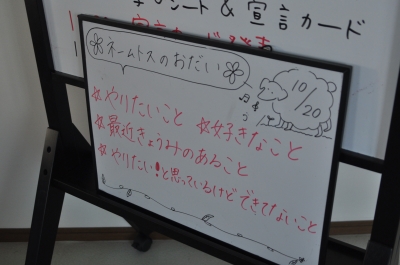 シート & 宣言カード
ネームトスのおだい
10/20
☆やりたいこと ☆好きなこと
☆最近きょうみのあること
☆やりたい!と思っているけどできてないこと